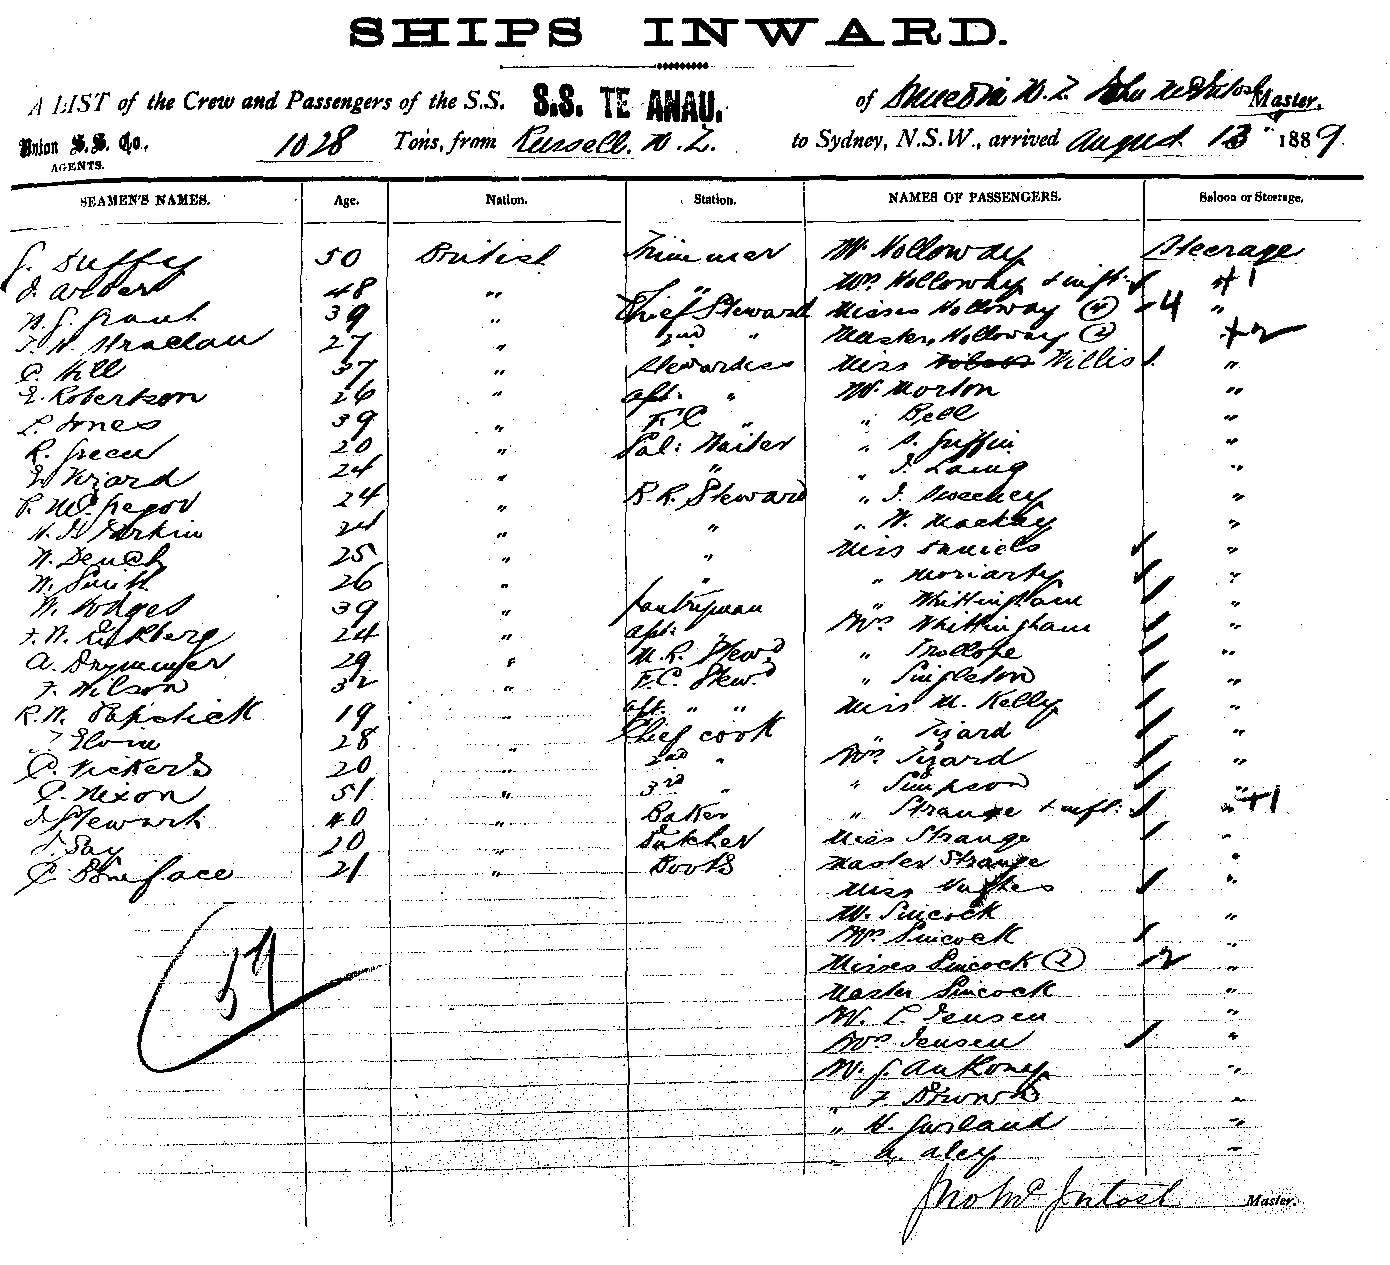 SHIPS INWARD.
A LIST of the Crew and Passengers of the S.S. S.S. TE ANAU. of Dunedin N.Z. John McIntosh Master,
Union S.S. Co., AGENTS. 1028 Tons, from Russell. N.Z. to Sydney, N.S.W., arrived August 13 1889
SEAMEN'S NAMES. Age. Nation. Station. NAMES OF PASSENGERS. Saloon or Steerage.
J. Duffy 50 British Trimmer Mr Holloway Steerage
48 " " Mrs Holloway + inft. " +1
N. J. Grant 39 " Chief Steward Misses Holloway (4) 4 "
Strachan 27 " 2nd " Masters Holloway (2) +2
C. Hill 37 " Stewardess Miss Willis "
E. Robertson 26 " asst. " Mr. Morton "
L. Jones 39 " F.C. " " Bell "
R. Green 20 " Sal: Waiter " S. Griffin "
E. Tizard 24 " " " J. Laing "
P. McGregor 24 " R.R. Steward " J. Sweeney "
Larkin 24 " " " W. Mackay "
W. Dench 25 " " Miss Daniels "
W. Smith 26 " " " Moriarty "
W. Hodges 39 " Pantryman " Whittingham "
24 " asst. Mrs Whittingham "
A. Drymmer 29 " M.R. Stewd " Trollope "
F. Wilson 32 " F.C. Stewd " Singleton "
R.W. Papstick 19 " asst. " " Miss M. Kelly "
Elvin 28 " Chief cook " Tizard "
C. Vickers 20 " 2nd " Mrs Tizard "
C. Nixon 51 " 3rd " " Simpson "
J. Stewart 40 " Baker " Strange + inft. " +1
J. Day 20 " Butcher Miss Strange "
C. Boniface 21 " Boots Master Strange "
Miss Hughes "
Mr. Sincock "
Mrs Sincock "
Misses Sincock (2) 2 "
Master Sincock "
Mr. L. Jensen "
Mrs Jensen "
Mr. J. Anthony "
" F. "
" H. Garland "
" A. Aley "
57
Jno McIntosh Master.